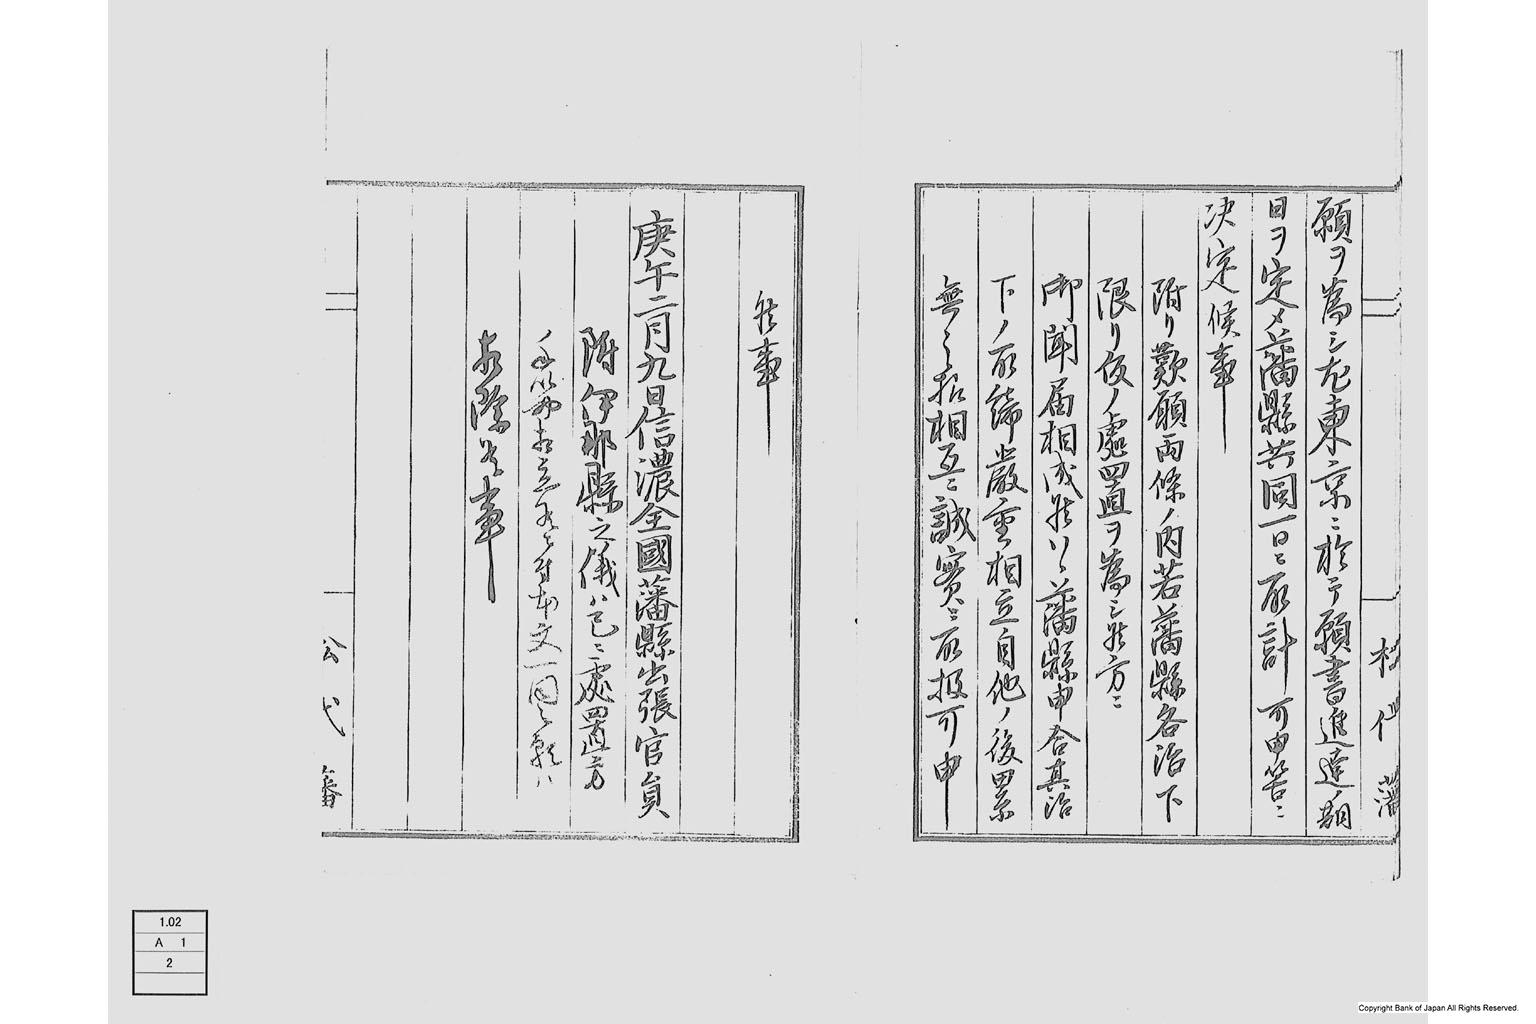 願ヲ為シ尤東京ニ於テ願書進達期
日ヲ定メ藩縣共同一日ニ取計可申筈ニ
決定候事
附リ歎願両條ノ内若藩縣各治下
限リ仮ノ處置ヲ為シ候方ニ
御聞届相成候ハヽ藩縣申合其治
下ノ取締嚴重相立自他ノ後累
無之様相互ニ誠實ニ取扱可申
候事
庚午二月九日信濃全國藩縣出張官員
附伊那縣之儀ハ已ニ處置方
本文一同之願ハ
相除候事
松代藩
松代藩
1.02
A 1
2
Copyright Bank of Japan All Rights Reserved.